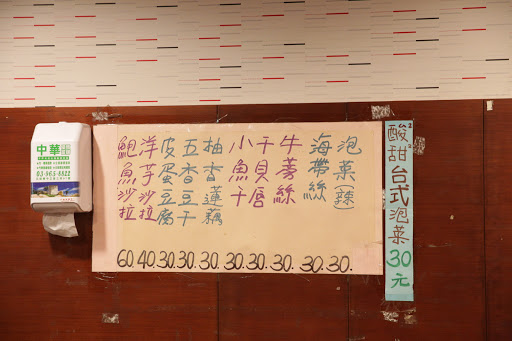 酸甜台式泡菜30元
泡菜(辣) 30.
海帶絲 30.
牛蒡絲 30.
干貝唇 30.
小魚干 30.
柚香蓮藕 30.
五香豆干 30.
皮蛋豆腐 30.
洋子沙拉 40.
鮑魚沙拉 60.
中華
03-963-8822